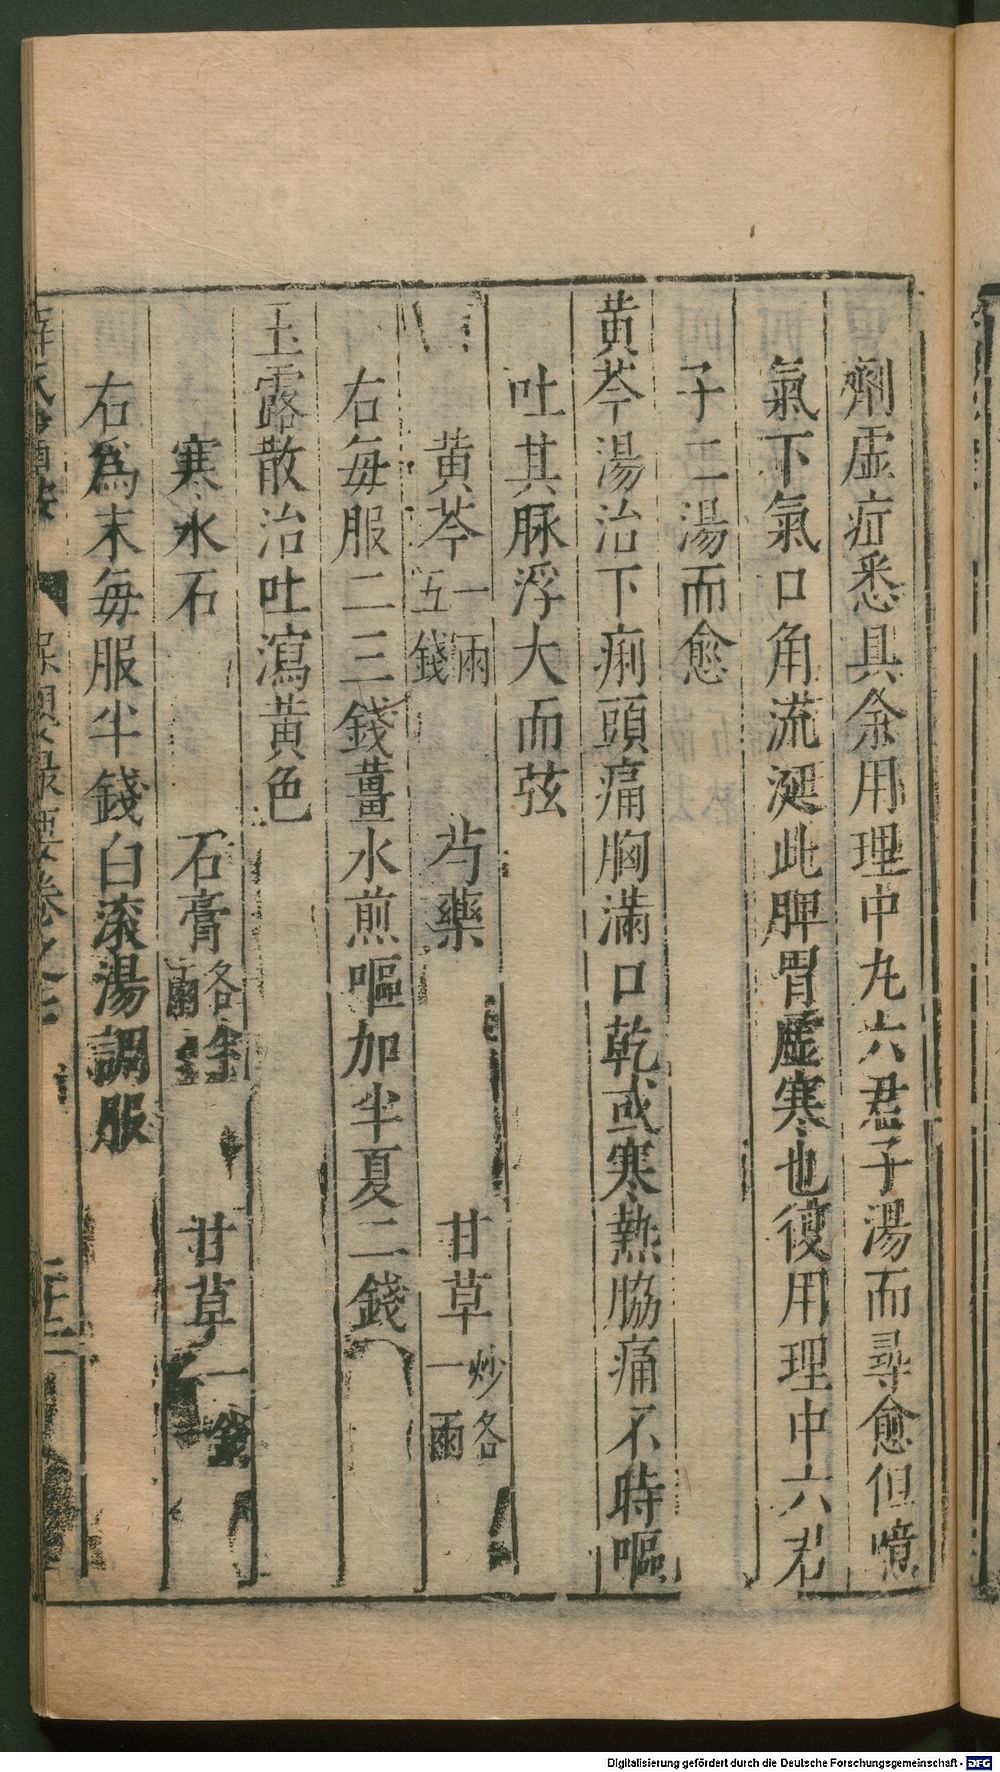 劑虛症悉具余用理中丸六君子湯而尋愈但噫
氣下氣口角流涎此脾胃虛寒也復用理中六君
子二湯而愈
黄芩湯治下痢頭痛胸滿口乾或寒熱脇痛不時嘔
吐其脉浮大而弦
黄芩一兩五錢 芍藥 甘草炒各一兩
右每服二三錢薑水煎嘔加半夏二錢
玉露散治吐瀉黄色
寒水石 石膏各半兩 甘草一錢
右為末每服半錢白滚湯調服
薛氏醫按 保嬰撮要卷之七
Digitalisierung gefördert durch die Deutsche Forschungsgemeinschaft - DFG